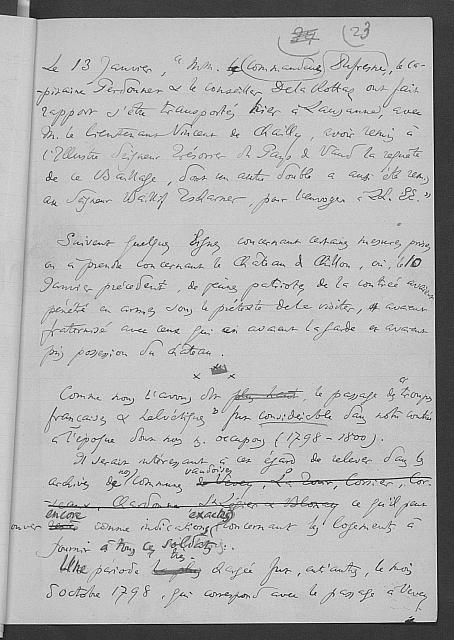 23
Le 13 Janvier, " MM. le Commandeur Dufresne, le ca-
pitaine Perdonnet & le conseiller De la Mottaz ont fait
rapport s'être transportés hier à Lausanne, avec
M. le Lieutenant Vincent de Chailly, avoir remis à
l'Illustre Seigneur Trésorier du Pays de Vaud la requête
de ce Bailliage, dont un autre double a aussi été remis
au Seigneur Baillif Tscharner, pour l'envoyer à LL. EE. "
Suivent quelques lignes concernant certaines mesures prises
ou à prendre concernant le Château de Chillon, où, le 10
Janvier précédent, de jeunes patriotes de la contrée avaient
pénétré en armes sous le prétexte de le visiter, avaient
fraternisé avec ceux qui en avaient la garde et avaient
pris possession du château.
x x
Comme nous l'avons dit plus haut, le passage des troupes
françaises & helvétiques fut considérable dans notre contrée
à l'époque dont nous n. occupons (1798-1800).
Il serait intéressant à cet égard de relever dans les
archives de nos Communes vaudoises de Vevey, La Tour, Corsier, Cor-
seaux, Chardonne, St Légier & Blonay ce qu'il peut
encore comme indications exactes concernant les logements à
fournir à tous ces soldats.
Une période très chargée fut, entr'autres, le mois
d'octobre 1798, qui correspond avec le passage à Vevey